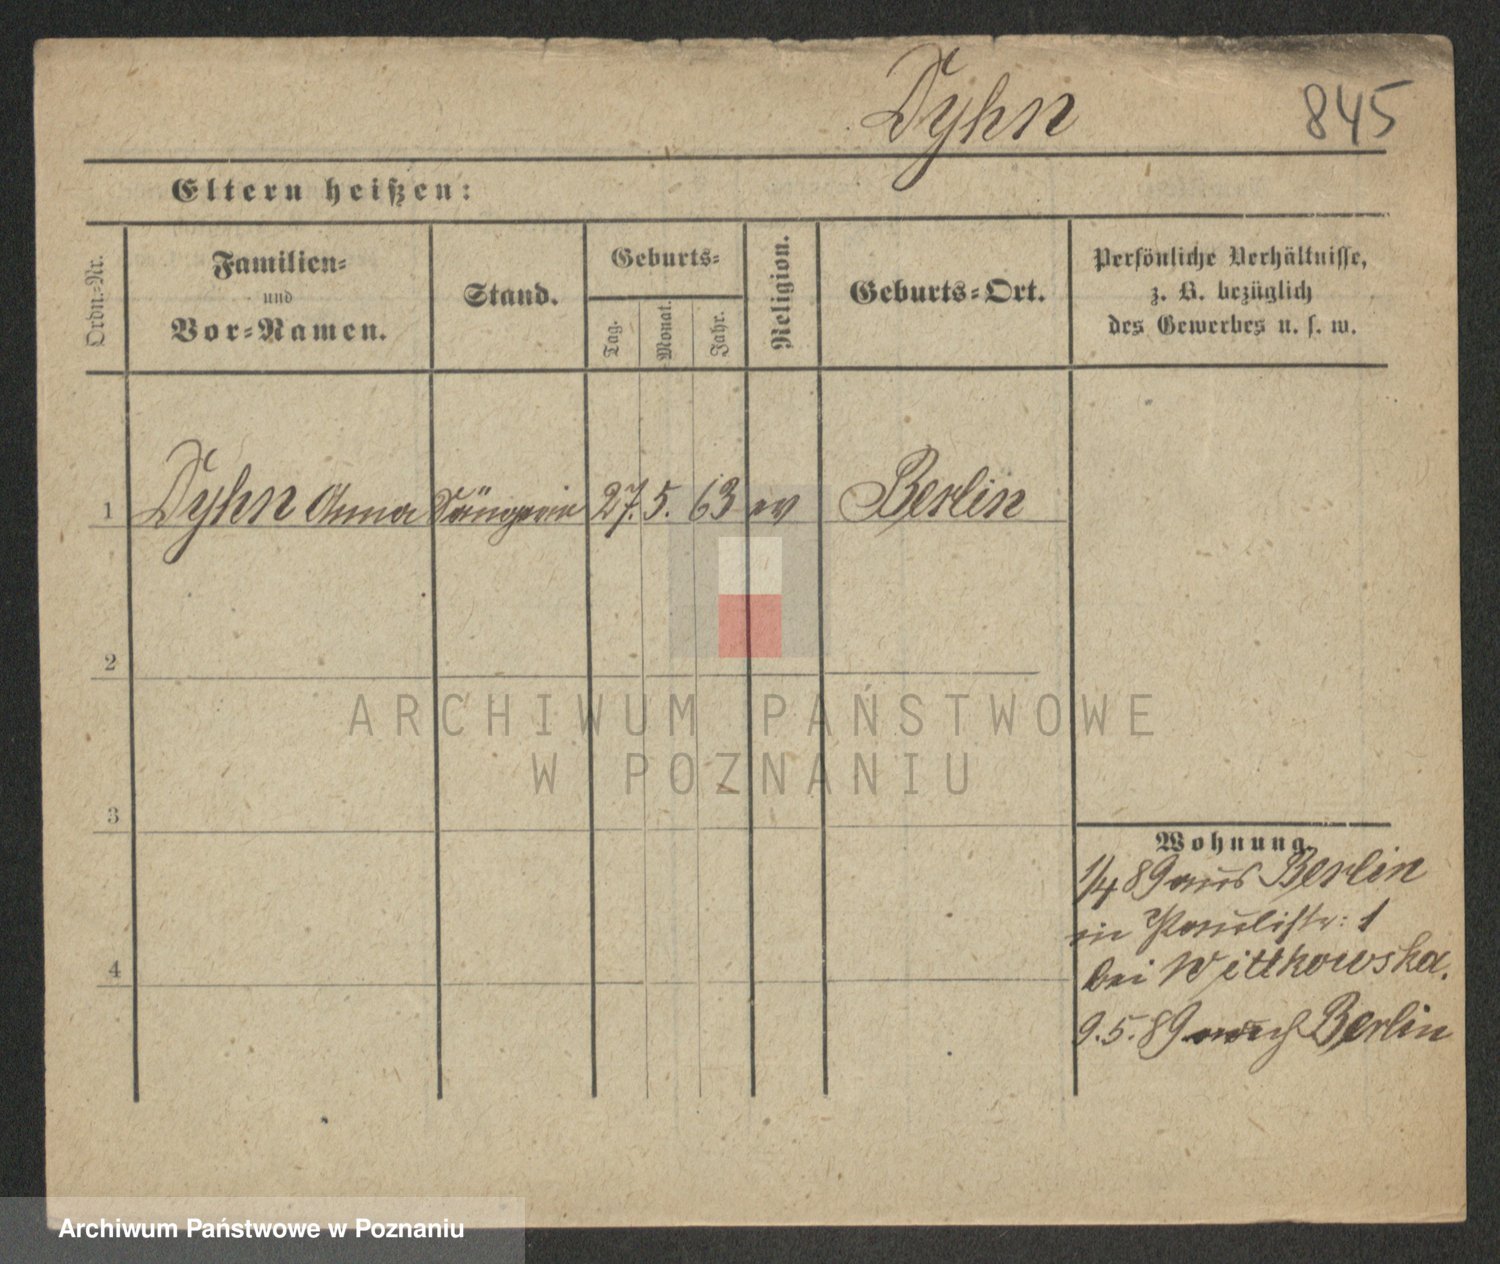 Dyhn
845
Eltern heißen:
Ordn.-Nr.
Familien-
und
Vor-Namen.
Stand.
Geburts-
Tag.
Monat.
Jahr.
Religion.
Geburts-Ort.
Persönliche Verhältnisse,
z. B. bezüglich
des Gewerbes u. s. w.
1 Dyhn Anna Sängerin 27. 5. 63 ev Berlin
2
3
4
Wohnung.
1/4 89 aus Berlin
in Paulistr: 1
bei Wittkowska.
9.5.89 nach Berlin
ARCHIWUM PAŃSTWOWE
W POZNANIU
Archiwum Państwowe w Poznaniu